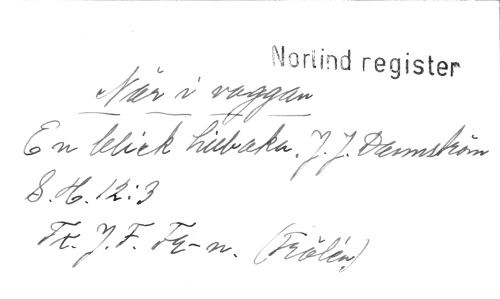 Norlind register
När i vaggan
En blick tillbaka. J. J. Dannström
S. H. 12:3
Tr. J. F. Fr-n. (Frölén)